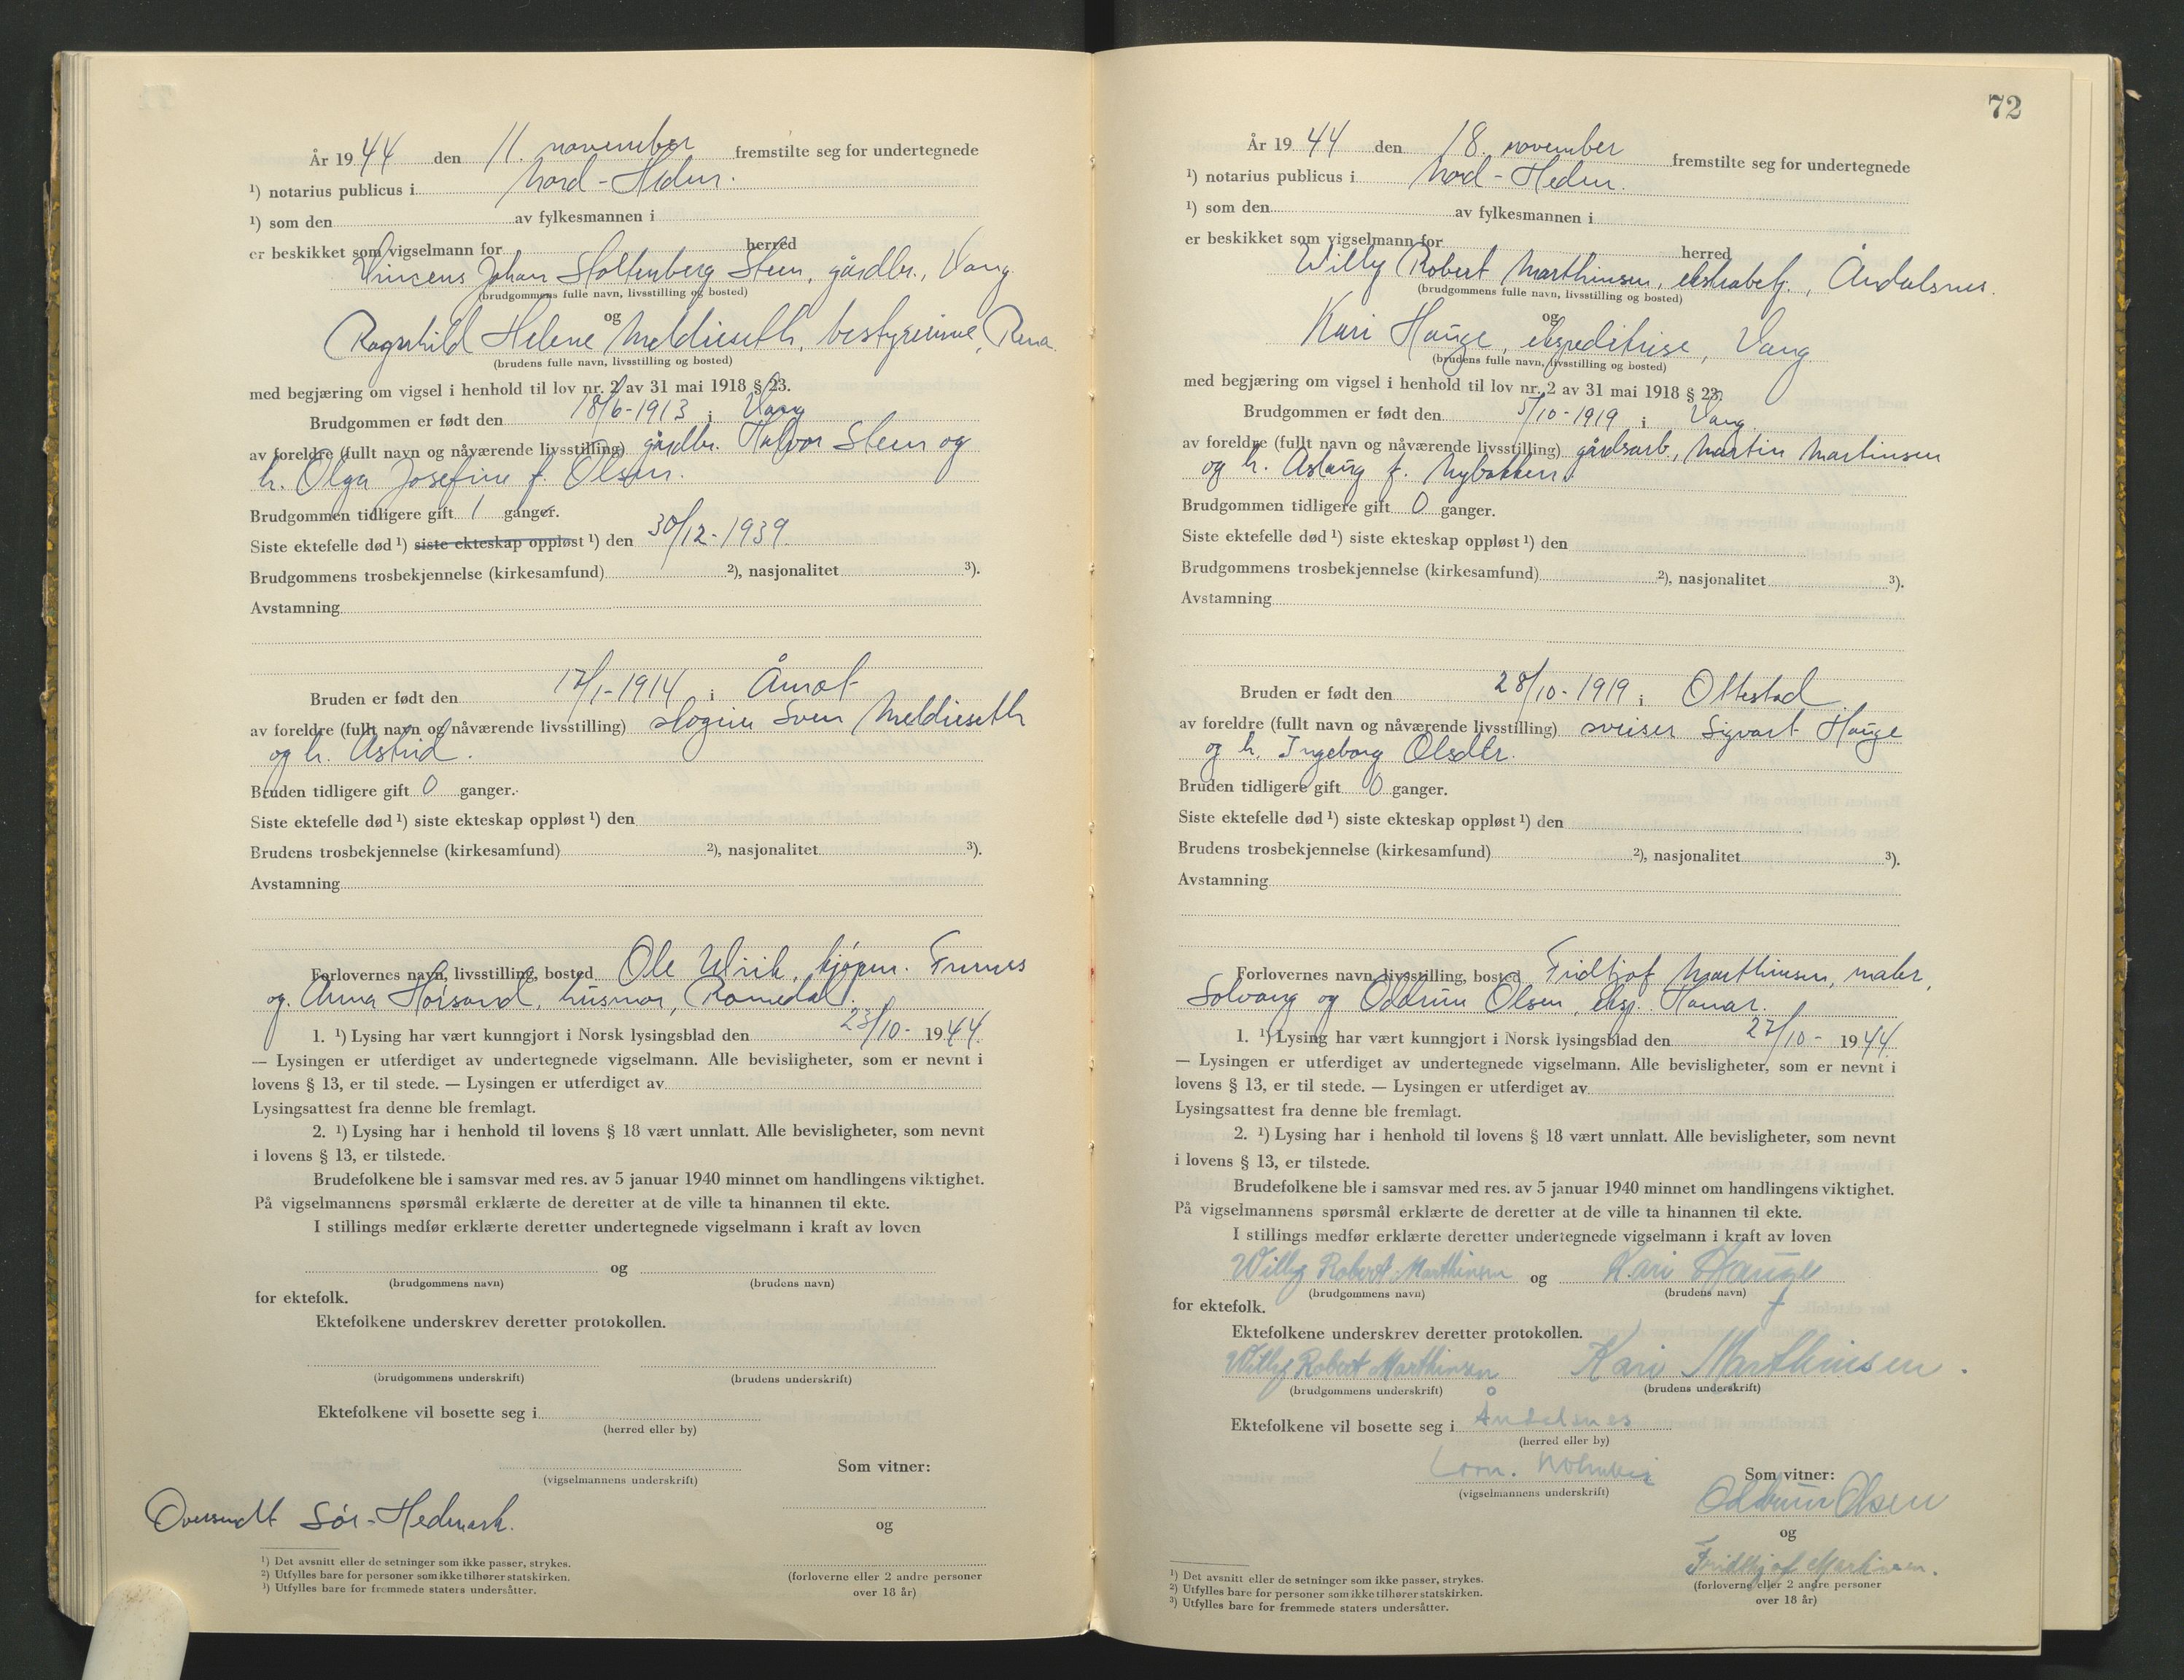 År 1944 den 11. november fremstilte seg for undertegnede
¹) notarius publicus i Nord-Hedm.
¹) som den av fylkesmannen i
er beskikket som vigselmann for herred
Vincens Johan Stoltenberg Steen, gårdbr., Vang.
(brudgommens fulle navn, livsstilling og bosted)
og
Ragnhild Helene Meldieseth, bestyrerinne, Rena.
(brudens fulle navn, livsstilling og bosted)
med begjæring om vigsel i henhold til lov nr. 2 av 31 mai 1918 § 23.
Brudgommen er født den 18/6-1913 i Vang
av foreldre (fullt navn og nåværende livsstilling) gårdbr. Halvor Steen og
h. Olga Josefine f. Olsen.
Brudgommen tidligere gift 1 ganger.
Siste ektefelle død ¹) siste ekteskap oppløst ¹) den 30/12-1939
Brudgommens trosbekjennelse (kirkesamfund) ²), nasjonalitet ³).
Avstamning
Bruden er født den 17/1-1914 i Åmot
av foreldre (fullt navn og nåværende livsstilling) Sven Meldieseth
og h. Astrid.
Bruden tidligere gift 0 ganger.
Siste ektefelle død ¹) siste ekteskap oppløst ¹) den
Brudens trosbekjennelse (kirkesamfund) ²), nasjonalitet ³).
Avstamning
Forlovernes navn, livsstilling, bosted Ole Ulrik, kjøpm. Furnes
og Anna Horsand, husmor, Romedal.
1. ¹) Lysing har vært kunngjort i Norsk lysingsblad den 23/10- 1944.
— Lysingen er utferdiget av undertegnede vigselmann. Alle bevisligheter, som er nevnt i
lovens § 13, er til stede. — Lysingen er utferdiget av
Lysingsattest fra denne ble fremlagt.
2. ¹) Lysing har i henhold til lovens § 18 vært unnlatt. Alle bevisligheter, som nevnt
i lovens § 13, er tilstede.
Brudefolkene ble i samsvar med res. av 5 januar 1940 minnet om handlingens viktighet.
På vigselmannens spørsmål erklærte de deretter at de ville ta hinannen til ekte.
I stillings medfør erklærte deretter undertegnede vigselmann i kraft av loven
og
(brudgommens navn) (brudens navn)
for ektefolk.
Ektefolkene underskrev deretter protokollen.
(brudgommens underskrift) (brudens underskrift)
Ektefolkene vil bosette seg i
(herred eller by)
Som vitner:
(vigselmannens underskrift)
Oversendt Sør-Hedmark.
og
(forloverne eller 2 andre personer
over 18 år)
¹) Det avsnitt eller de setninger som ikke passer, strykes.
²) Utfylles bare for personer som ikke tilhører statskirken.
³) Utfylles bare for fremmede staters undersåtter.
72
År 1944 den 18. november fremstilte seg for undertegnede
¹) notarius publicus i Nord-Hedm.
¹) som den av fylkesmannen i
er beskikket som vigselmann for herred
Willy Robert Marthinsen, ekstrabetj., Åndalsnes.
(brudgommens fulle navn, livsstilling og bosted)
og
Kari Hauge, ekspeditrise, Vang.
(brudens fulle navn, livsstilling og bosted)
med begjæring om vigsel i henhold til lov nr. 2 av 31 mai 1918 § 23.
Brudgommen er født den 5/10-1919 i Vang.
av foreldre (fullt navn og nåværende livsstilling) gårdsarb., Martin Martinsen
og h. Aslaug f. Nybakken.
Brudgommen tidligere gift 0 ganger.
Siste ektefelle død ¹) siste ekteskap oppløst ¹) den
Brudgommens trosbekjennelse (kirkesamfund) ²), nasjonalitet ³).
Avstamning
Bruden er født den 28/10-1919 i Ottestad
av foreldre (fullt navn og nåværende livsstilling) sveiser Sigvart Hauge
og h. Ingeborg Olsdtr.
Bruden tidligere gift 0 ganger.
Siste ektefelle død ¹) siste ekteskap oppløst ¹) den
Brudens trosbekjennelse (kirkesamfund) ²), nasjonalitet ³).
Avstamning
Forlovernes navn, livsstilling, bosted Fridtjof Marthinsen, maler,
Solvang og Oddrun Olsen, eksp. Hamar.
1. ¹) Lysing har vært kunngjort i Norsk lysingsblad den 27/10- 1944.
— Lysingen er utferdiget av undertegnede vigselmann. Alle bevisligheter, som er nevnt i
lovens § 13, er til stede. — Lysingen er utferdiget av
Lysingsattest fra denne ble fremlagt.
2. ¹) Lysing har i henhold til lovens § 18 vært unnlatt. Alle bevisligheter, som nevnt
i lovens § 13, er tilstede.
Brudefolkene ble i samsvar med res. av 5 januar 1940 minnet om handlingens viktighet.
På vigselmannens spørsmål erklærte de deretter at de ville ta hinannen til ekte.
I stillings medfør erklærte deretter undertegnede vigselmann i kraft av loven
Willy Robert Marthinsen og Kari Hauge
(brudgommens navn) (brudens navn)
for ektefolk.
Ektefolkene underskrev deretter protokollen.
Willy Robert Marthinsen Kari Marthinsen.
(brudgommens underskrift) (brudens underskrift)
Ektefolkene vil bosette seg i Åndalsnes
(herred eller by)
Som vitner:
(vigselmannens underskrift)
Oddrun Olsen
og
Fridthjof Marthinsen.
(forloverne eller 2 andre personer
over 18 år)
¹) Det avsnitt eller de setninger som ikke passer, strykes.
²) Utfylles bare for personer som ikke tilhører statskirken.
³) Utfylles bare for fremmede staters undersåtter.